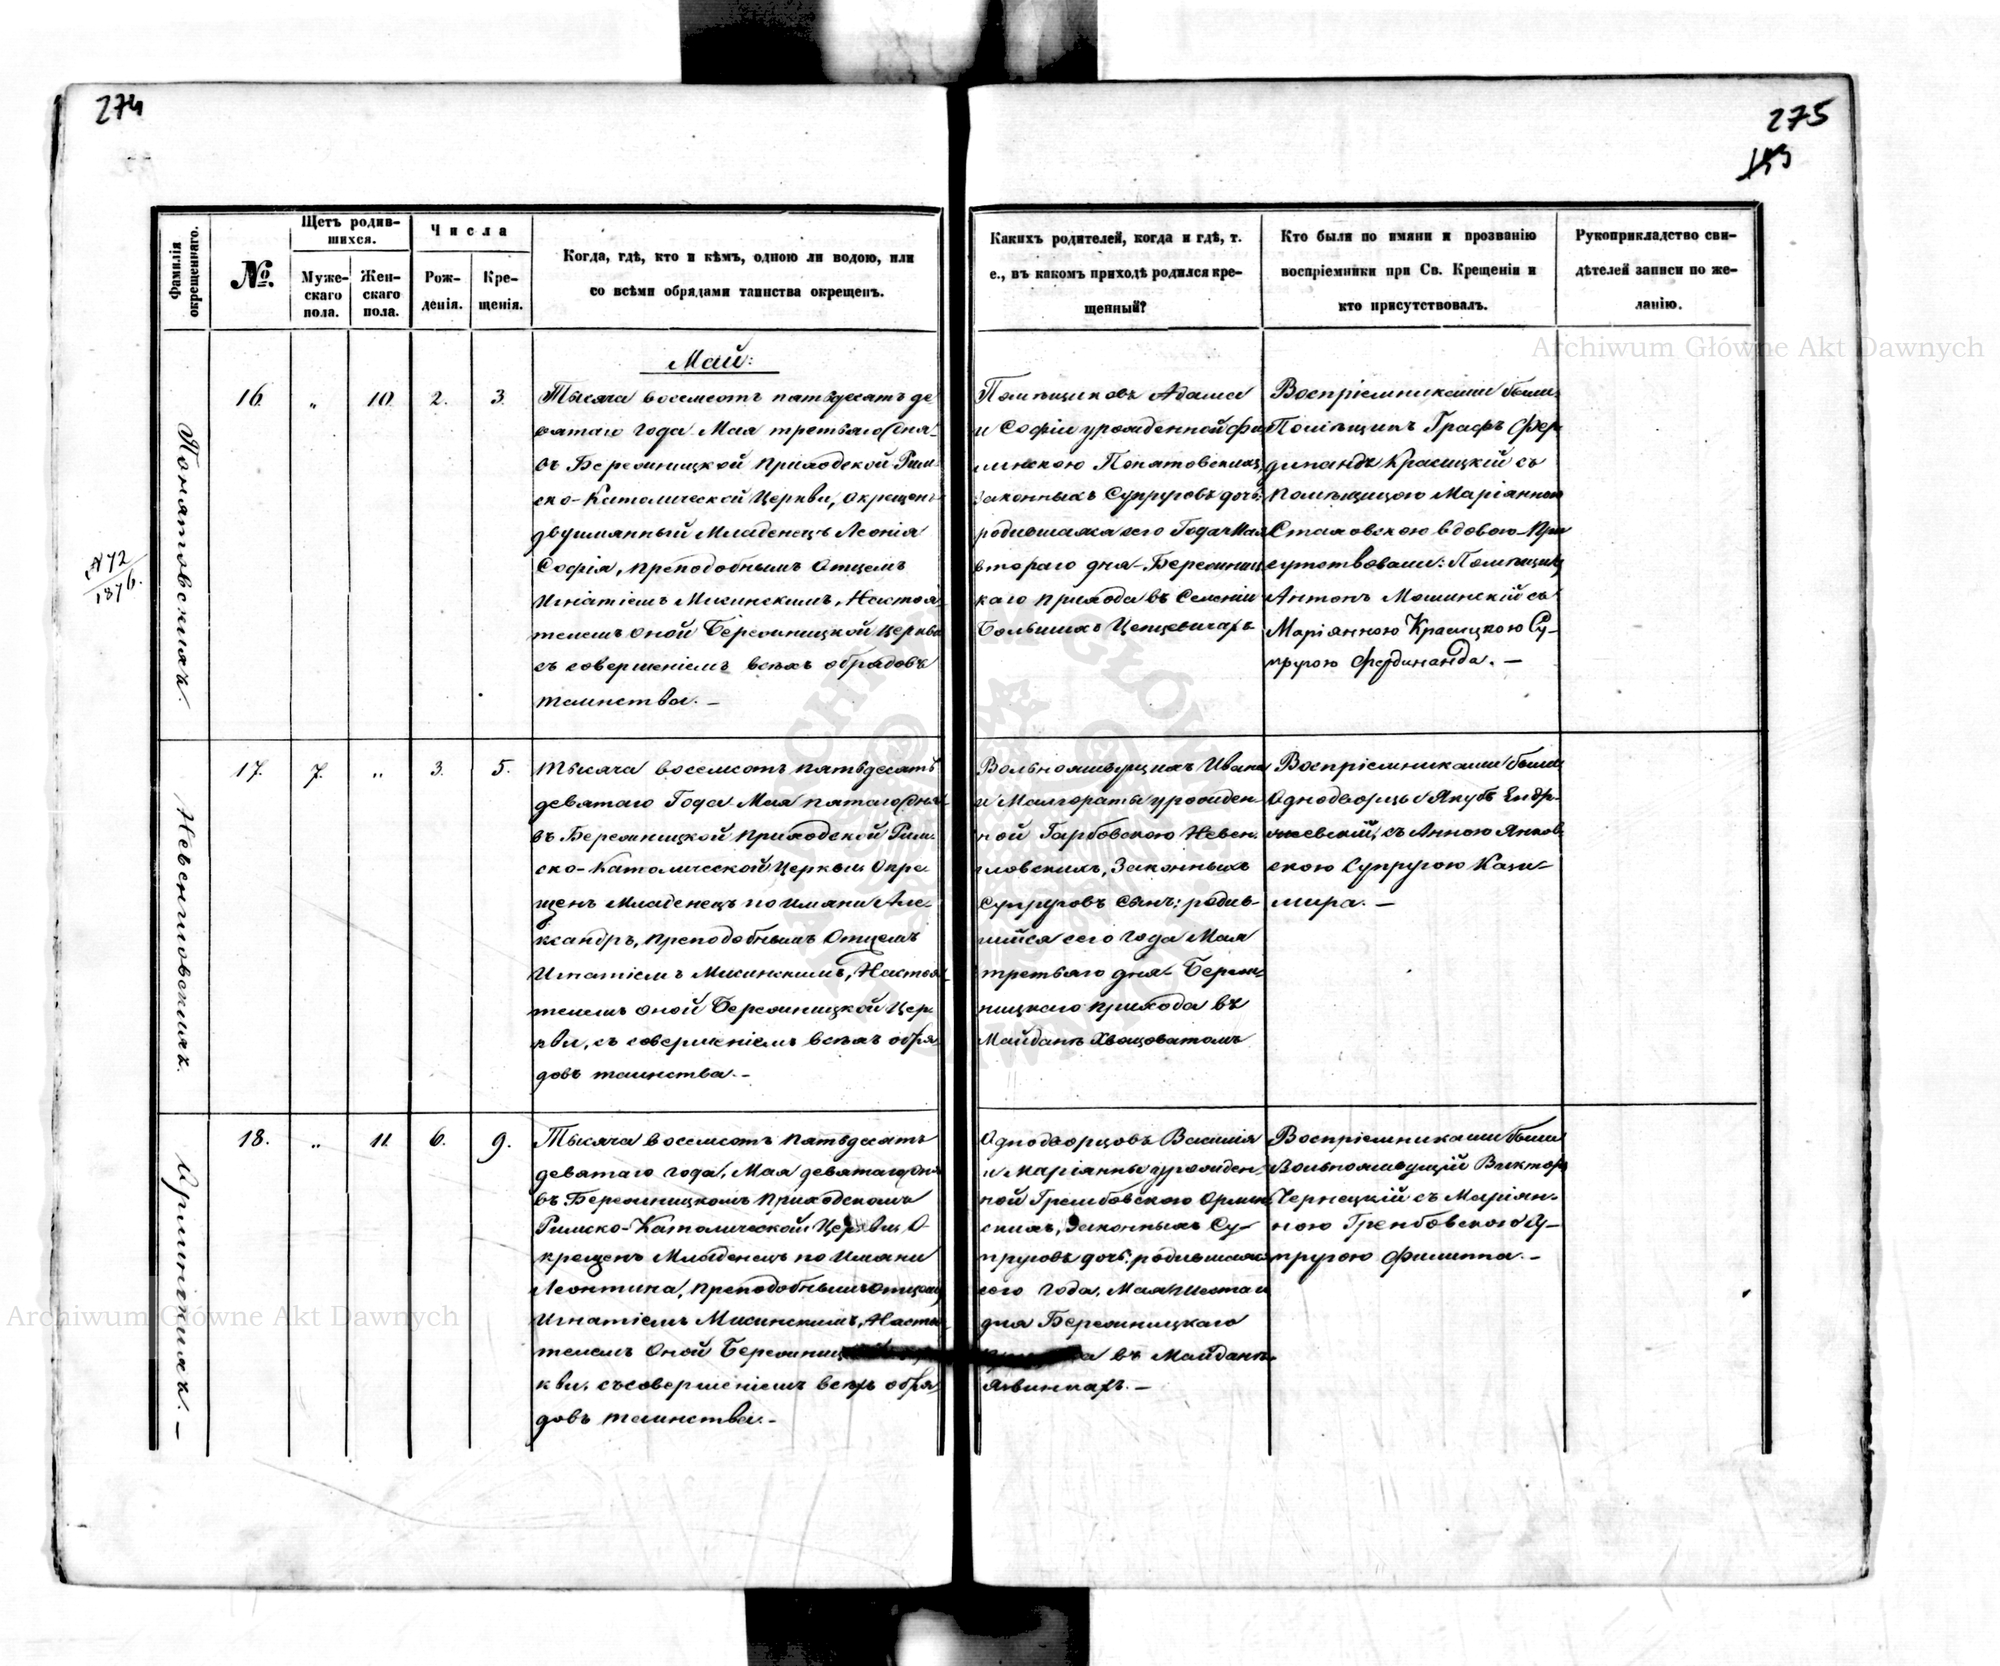 274
275
Фамилія окрещеннаго.
№.
Щетъ родив-
шихся.
Муже-
скаго
пола.
Жен-
скаго
пола.
Числа
Рож-
денія.
Кре-
щенія.
Когда, гдѣ, кто и кѣмъ, одною ли водою, или
со всѣми обрядами таинства окрещенъ.
Какихъ родителей, когда и гдѣ, т.
е., въ какомъ приходѣ родился кре-
щенный?
Кто были по имяни и прозванію
воспріемники при Св. Крещеніи и
кто присутствовалъ.
Рукоприкладство сви-
дѣтелей записи по же-
ланію.
Май:
Понятовскихъ.
16.
"
10
2.
3.
Тысяча восемсотъ пятьдесятъ де
вятаго года Мая третьяго дня
въ Березницкой Приходской Рим
ско-Католической Церкви, окрещенъ
двуимянный Младенецъ Леонія
Софія, Преподобнымъ Отцемъ
Игнатіемъ Мисинскимъ, Настоя
телемъ оной Березницкой Церкви
съ совершеніемъ всѣхъ обрядовъ
таинства.-
Помѣщиковъ Адама
и Софіи урожденной
Понятовскихъ
законныхъ Супруговъ дочь,
родившаяся сего Года Мая
втораго дня Березниц
каго прихода въ Селеніи
Большихъ Цепцевичахъ
Воспріемниками были:
Помѣщикъ Графъ Фер
динандъ Красицкій съ
помѣщицою Маріанною
Стаховскою вдовою При
сутствовали: Помѣщикъ
Антонъ Мошинскій съ
Маріянною Красицкою Су-
пругою Фердинанда. -
472
1876.
17.
7.
"
3.
5.
Тысяча восемсотъ пятьдесятъ
девятаго Года Мая пятаго дня
въ Березницкой Приходской Рим
ско-Католической Церкви Окре
щенъ Младенецъ по имяни Але
ксандръ, Преподобнымъ Отцемъ
Игнатіемъ Мисинскимъ, Настоя
телемъ оной Березницкой Цер
кви, съ совершеніемъ всѣхъ обря
довъ таинства.-
Вольноживущихъ Ивана
и Малгораты урожден
ной Гарбовскою
Законныхъ
Супруговъ сынъ; родив-
шійся сего года Мая
третьяго дня Берез
ницкаго прихода въ
Майданѣ Хвощоватомъ
Воспріемниками были
Однодворцы Якубъ
съ Анною Янков
скою Супругою Кази-
мира.-
18.
"
11.
6.
9.
Тысяча восемсотъ пятьдесятъ
девятаго года, Мая девятаго дня
въ Березницкомъ Приходскомъ
Римско-Католической Церкви О
крещенъ Младенецъ по Имяни
Леонтина, Преподобнымъ Отцемъ
Игнатіемъ Мисинскимъ, Настоя
телемъ Оной Березниц
кви, съ совершеніемъ всѣхъ обря
довъ таинства.-
Однодворцовъ Василія
и Маріянны урожден
ной Грембовскою
Законныхъ Су-
пруговъ дочь; родившаяся
сего года, Мая шестаго
дня Березницкаго
въ Майданѣ
Воспріемниками были
Вольноживущій Викторъ
Чернецкій съ Маріян-
ною Гренбовскою Су-
пругою Филиппа.-
Archiwum Główne Akt Dawnych
Archiwum Główne Akt Dawnych